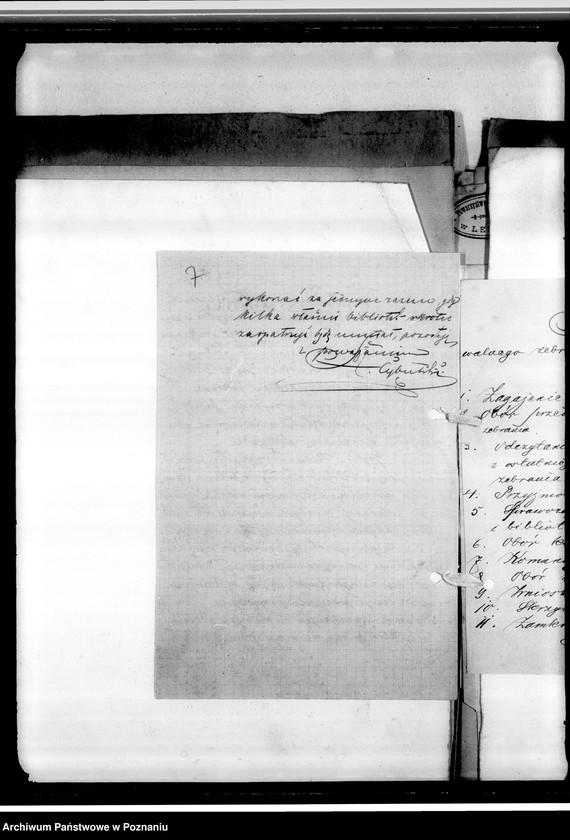 7
wykonać za jednym razem, gdy
kilka właśni bibliotek wkrótce
zaopatrzyć będę musiał, pozostaję
z poważaniem
C. Cybulski.
W LE
walnego zebr
1. Zagajenie
2. Obór prze
zebrania.
3. Odczytan
z ostatnie
zebrania
4. Przyjmo
5. Sprawoz
i bibliot
6. Obór
7.
8. Obór
9. Wnios
10.
11. Zamkn
Archiwum Państwowe w Poznaniu